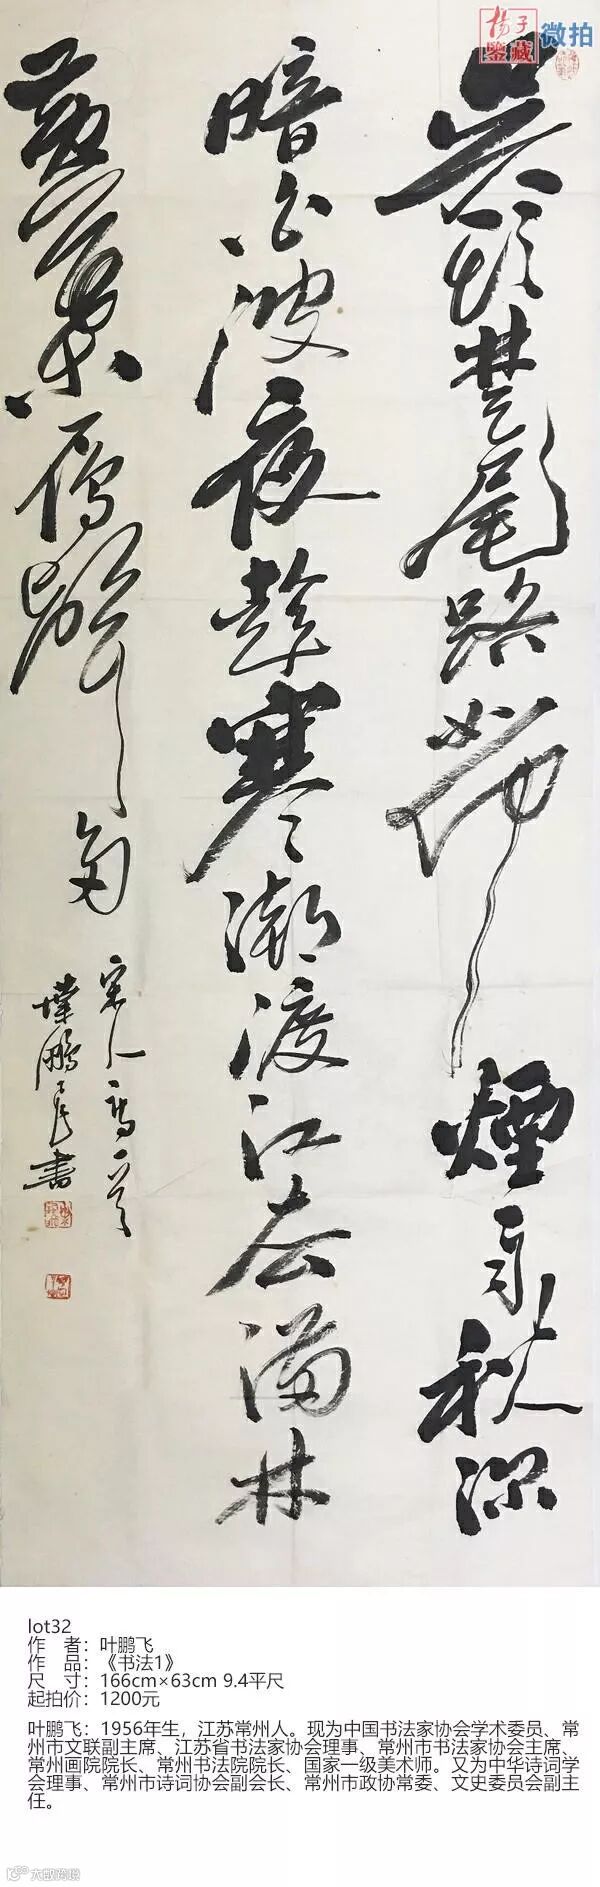 揚子
鑒藏 微拍
吳頭楚尾路如何煙雨秋深
暗白波夜趁寒潮渡江去滿林
黃葉雁聲多
宋人詩一首
葉鵬飛書
lot32
作 者：叶鹏飞
作 品：《书法1》
尺 寸：166cm×63cm 9.4平尺
起拍价：1200元
叶鹏飞：1956年生，江苏常州人。现为中国书法家协会学术委员、常
州市文联副主席、江苏省书法家协会理事、常州市书法家协会主席、
常州画院院长、常州书法院院长、国家一级美术师。又为中华诗词学
会理事、常州市诗词协会副会长、常州市政协常委、文史委员会副主
任。
大数跨境